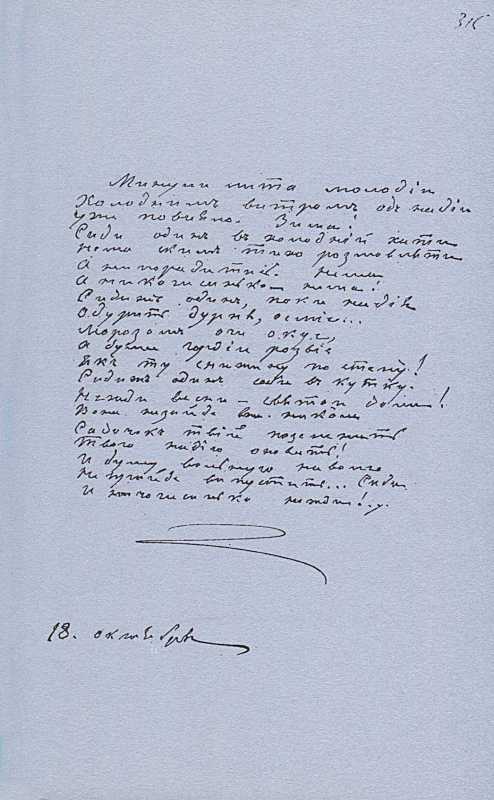 316
Минули лита молодіи
Холоднымъ витромъ одъ надіи
Уже повіяло. Зима!
Сиди одинъ въ холодній хати
Нема зкимъ тихо розмовляти
А ни порадитись. Нема
А никогисинько нема!
Сидижъ одинъ, поки надія
Одурить дурня, осміє...
Морозомъ очи окує,
А думи гордіи розвіє
Якъ ту снижину по степу!
Сидижъ одинъ соби въ кутку.
Нежди весни — святои доли!
Вона незійде вже николи
Садочокъ твій позеленить
Твою надію оновить!
И думу вольную наволю
Не прийде випустить... Сиди
И ничогисинько нежди!..
18. октября